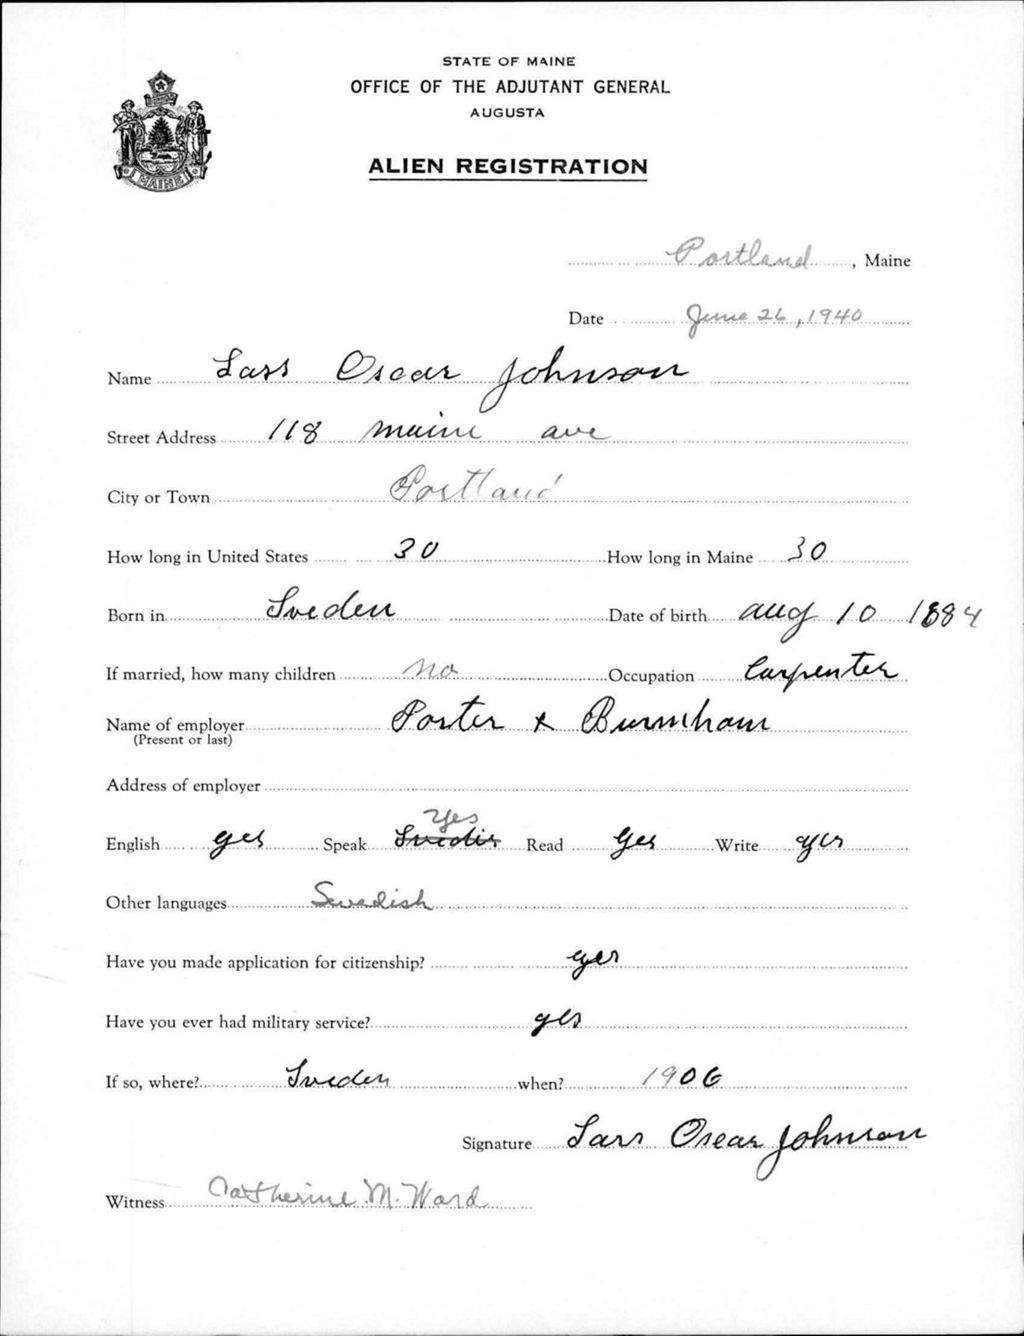 STATE OF MAINE
OFFICE OF THE ADJUTANT GENERAL
AUGUSTA
ALIEN REGISTRATION
MAINE
Portland, Maine
Date June 26, 1940
Name Lars Oscar Johnson
Street Address 118 Maine ave
City or Town Portland
How long in United States 30 How long in Maine 30
Born in Sveden Date of birth aug 10 1884
If married, how many children no Occupation Carpenter
Name of employer Porter & Burnham
(Present or last)
Address of employer
Yes
English yes Speak Svedis Read yes Write yes
Other languages Swedish
Have you made application for citizenship? yes
Have you ever had military service? yes
If so, where? Sveden when? 1906
Signature Lars Oscar Johnson
Witness Catherine M. Ward